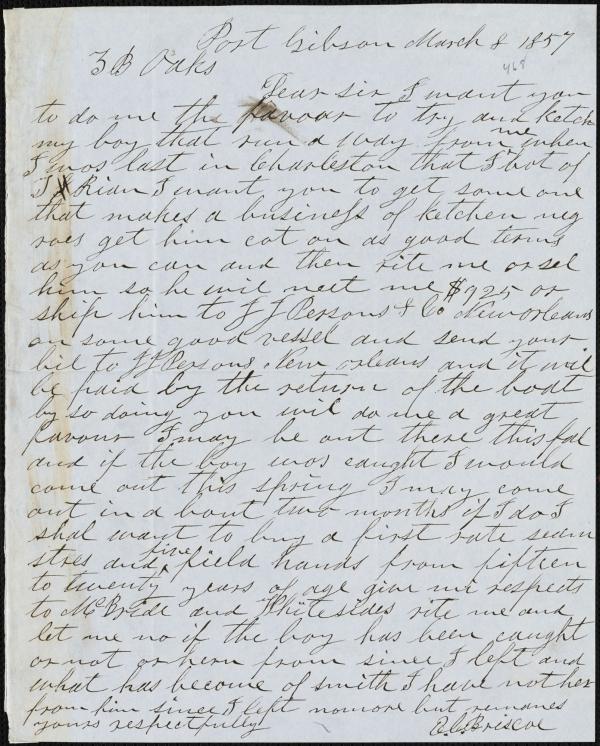 Port Gibson March 8 1857
Z B Oaks
468
Dear sir I want you
to do me the favour to try and ketch
my boy that run a way from me when
I wos last in Charleston that I bot of
J Rian I want you to get some one
that makes a business of ketchen neg
roes get him cot on as good terms
as you can and then rite me or sel
him so he will neet me $925 or
ship him to J J Persons & Co New orleans
on some good vessel and send your
bil to J J Persons New orleans and it wil
be paid by the return of the boat
by so doing you wil do me a great
favour I may be out there this fal
and if the boy wos caught I would
come out this spring I may come
out in a bout two months if I do I
shal want to buy a first rate seam
stres and five field hands from fifteen
to twenty years of age give mi respects
to McBride and Whitesides rite me and
let me no if the boy has been caught
or not or hern from since I left and
what has become of smith I have not her
from him since I left nomore but remanes
yours respectfully
A C Briscoe